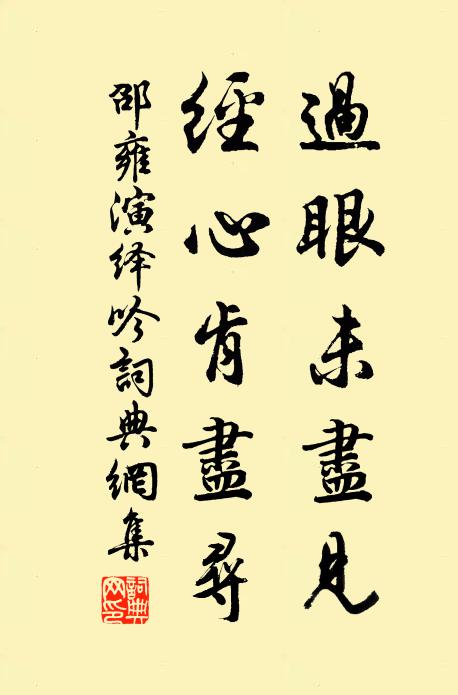 過眼未盡見
經心肯盡尋
邵雍演绎吟詞典網集
詞典網印